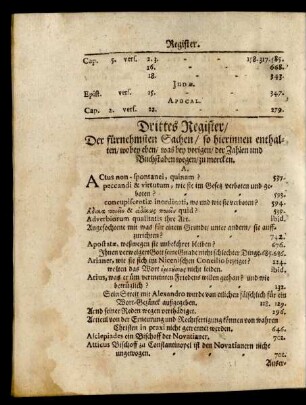 Register.
Cap. 5. vers. 2. 3. - - 158. 317. 585.
16. - - 668.
18. - - 343.
JUDÆ.
Epist. vers. 15. - - 347.
APOCAL.
Cap. 2. vers. 22. - - 279.
Drittes Register/
Der fürnehmsten Sachen/ so hierinnen enthal-
ten/ wobey eben/ was bey vorigen/ der Zahlen und
Buchstaben wegen/ zu mercken.
A.
Actus non-spontanei, quinam?
peccandi & virtutum, wie sie im Gesetz verboten und ge-
boten? 593.
concupiscentiæ inordinati, wo und wie sie verboten? 594.
quid? ibid.
Adverbiorum qualitatis ihre Art. ibid.
Angefochtene mit was für einem Grunde/ unter andern/ sie auff-
zurichten? 742.
Apostatæ, weßwegen sie unbekehret bleiben? 676.
Arianer, wie sie sich im Nicenischen Concilio bezeiget? 124.
wolten das Wort nicht leiden. ibid.
Arius, was er zum vermeinten Frieden willen gethan? und wie
betrüglich? 132.
Sein Streit mit Alexandro werde von etlichen fälschlich für ein
Wort-Gezänck außgegeben. 118. 129.
Arnd seiner Reden wegen verthädiget. 296.
Articul von der Erneurung und Rechtfertigung können von wahren
Christen in praxi nicht getrennet werden. 646.
Asclepiades ein Bischoff der Novatianer. 702.
Atticus Bischoff zu Constantinopel ist den Novatianern nicht
ungewogen. 702.
Auser-